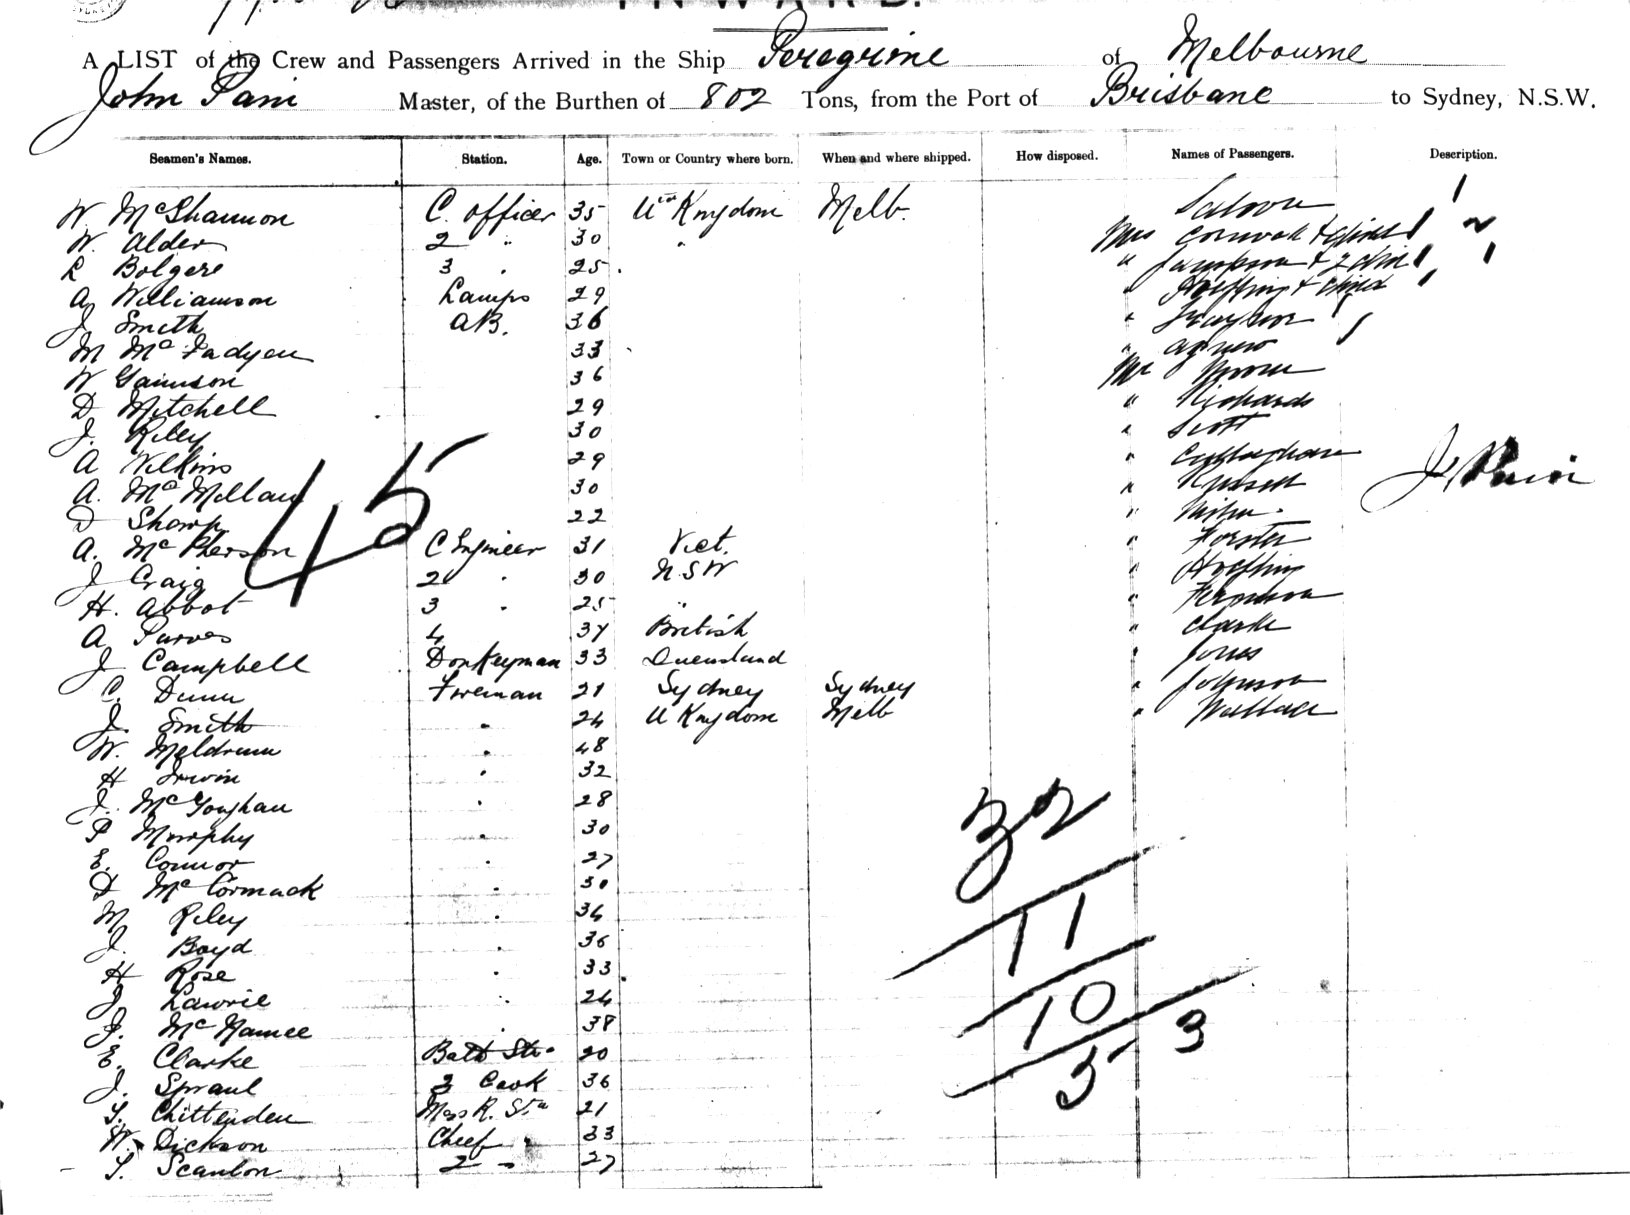 INWARD.
A LIST of the Crew and Passengers Arrived in the Ship Peregrine of Melbourne
John Pain Master, of the Burthen of 802 Tons, from the Port of Brisbane to Sydney, N.S.W.
Seamen's Names. Station. Age. Town or Country where born. When and where shipped. How disposed. Names of Passengers. Description.
W. McShannon C. Officer 35 Utd Kngdom Melb. Saloon 1
W. Alder 2 " 30 " Mrs & Child 1 2
R Bolgere 3 " 25 " & 2 chn 1 1
A. Williamson Lamps 29 " & child 1
J Smith AB. 36 "
M McFadyen 33 " Agnew
W 36 Mr Moore
D Mitchell 29 " Richards
J. Riley 30 " Scott
A Wilkins 29 "
A. McMillan 30 " Russell J. Pain
D Sharp 22 "
A. McPherson C Engineer 31 Vict. " Forster
J Craig 2 " 30 N.S.W "
H. Abbot 3 " 25 " " Ferguson
A Purves 4 37 British " Clarke
J Campbell Donkeyman 33 Queensland " Jones
C. Dunn Fireman 21 Sydney Sydney " Johnson
J. Smith " 24 U Kngdom Melb " Wallace
W. Meldrum " 48
H Irwin " 32
J. McGoughan " 28
P Murphy " 30
E. Connor " 27
D McCormack " 30
M Riley 34
J. Boyd " 36
H Rose " 33
J. Lawrie " 24
J. McNamee " 38
E. Clarke 20
J. Spraul 2 Cook 36
S. Chittenden Mess R. Std 21
W. Dickson Chief " 33
S. Scanlon 2 " 27
45
32
11
10
53